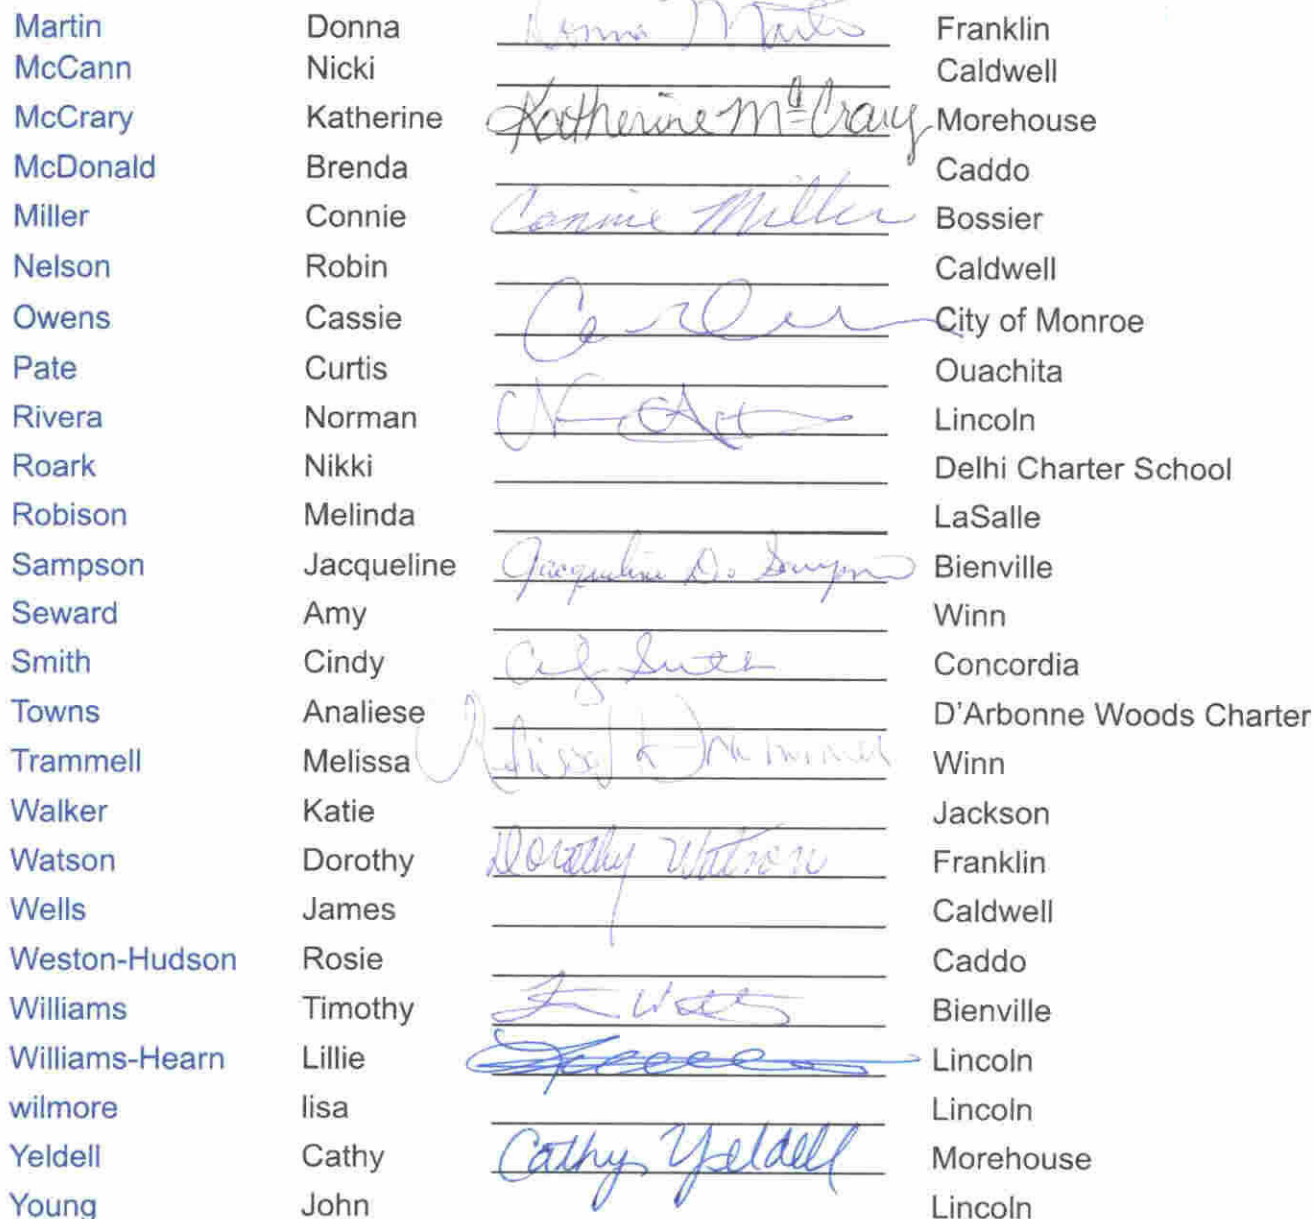 Martin Donna Donna Martin Franklin
McCann Nicki Caldwell
McCrary Katherine Katherine McCrary Morehouse
McDonald Brenda Caddo
Miller Connie Connie Miller Bossier
Nelson Robin Caldwell
Owens Cassie City of Monroe
Pate Curtis Ouachita
Rivera Norman Lincoln
Roark Nikki Delhi Charter School
Robison Melinda LaSalle
Sampson Jacqueline Jacqueline D. Sampson Bienville
Seward Amy Winn
Smith Cindy Concordia
Towns Analiese D'Arbonne Woods Charter
Trammell Melissa Winn
Walker Katie Jackson
Watson Dorothy Dorothy Watson Franklin
Wells James Caldwell
Weston-Hudson Rosie Caddo
Williams Timothy Bienville
Williams-Hearn Lillie Lincoln
wilmore lisa Lincoln
Yeldell Cathy Cathy Yeldell Morehouse
Young John Lincoln